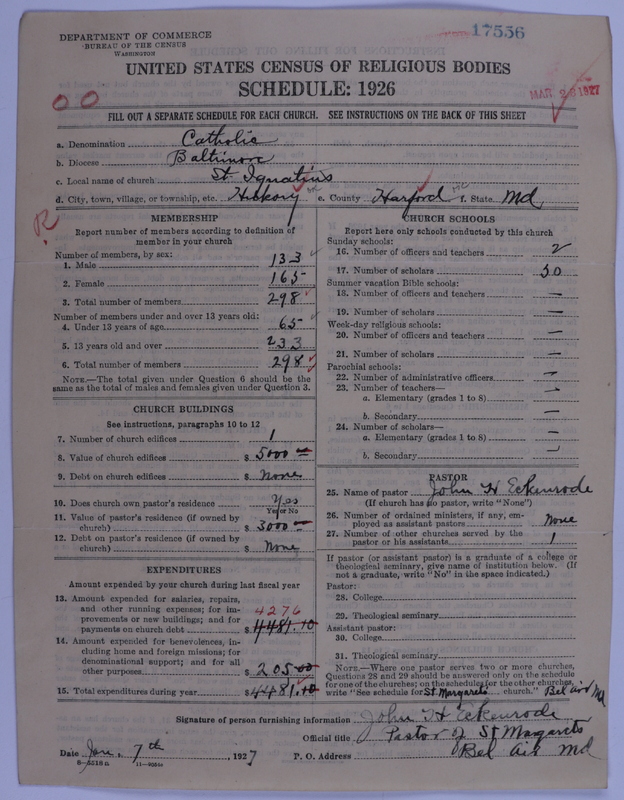 17556
DEPARTMENT OF COMMERCE
BUREAU OF THE CENSUS
WASHINGTON
UNITED STATES CENSUS OF RELIGIOUS BODIES
SCHEDULE: 1926
MAR 26 1927
00
FILL OUT A SEPARATE SCHEDULE FOR EACH CHURCH. SEE INSTRUCTIONS ON THE BACK OF THIS SHEET
a. Denomination Catholic
b. Diocese Baltimore
c. Local name of church St. Ignatius
d. City, town, village, or township, etc. Hickory e. County Harford f. State Md
R
MEMBERSHIP
Report number of members according to definition of
member in your church
Number of members, by sex:
1. Male 133
2. Female 165
3. Total number of members 298
Number of members under and over 13 years old:
4. Under 13 years of age 65
5. 13 years old and over 233
6. Total number of members 298
NOTE.—The total given under Question 6 should be
same as the total of males and females given under Question 3.
CHURCH BUILDINGS
See instructions, paragraphs 10 to 12
7. Number of church edifices 1
8. Value of church edifices $ 5000
9. Debt on church edifices $ None
10. Does church own pastor's residence Yes
Yes or No
11. Value of pastor's residence (if owned by
church) $ 3000
12. Debt on pastor's residence (if owned by
church) $ None
EXPENDITURES
Amount expended by your church during last fiscal year
13. Amount expended for salaries, repairs,
and other running expenses; for im-
provements or new buildings; and for 4276
payments on church debt $ 4481.10
14. Amount expended for benevolences, in-
cluding home and foreign missions; for
denominational support; and for all
other purposes $ 205.00
15. Total expenditures during year $ 4481.10
CHURCH SCHOOLS
Report here only schools conducted by this church
Sunday schools:
16. Number of officers and teachers 2
17. Number of scholars 50
Summer vacation Bible schools:
18. Number of officers and teachers —
19. Number of scholars —
Week-day religious schools:
20. Number of officers and teachers —
21. Number of scholars —
Parochial schools:
22. Number of administrative officers —
23. Number of teachers—
a. Elementary (grades 1 to 8) —
b. Secondary —
24. Number of scholars—
a. Elementary (grades 1 to 8) —
b. Secondary —
PASTOR
25. Name of pastor John H Eckenrode
(If church has no pastor, write "None")
26. Number of ordained ministers, if any, em-
ployed as assistant pastors None
27. Number of other churches served by the
pastor or his assistants 1
If pastor (or assistant pastor) is a graduate of a college or
theological seminary, give name of institution below. (If
not a graduate, write "No" in the space indicated.)
Pastor:
28. College
29. Theological seminary
Assistant pastor:
30. College
31. Theological seminary
NOTE.—Where one pastor serves two or more churches,
Questions 28 and 29 should be answered only on the schedule
for one of the churches; on the schedules for the other churches,
write "See schedule for St Margarets church." Bel Air Md
Signature of person furnishing information John H Eckenrode
Official title Pastor of St Margarets
Date Jan. 7th, 1927 P. O. Address Bel Air Md